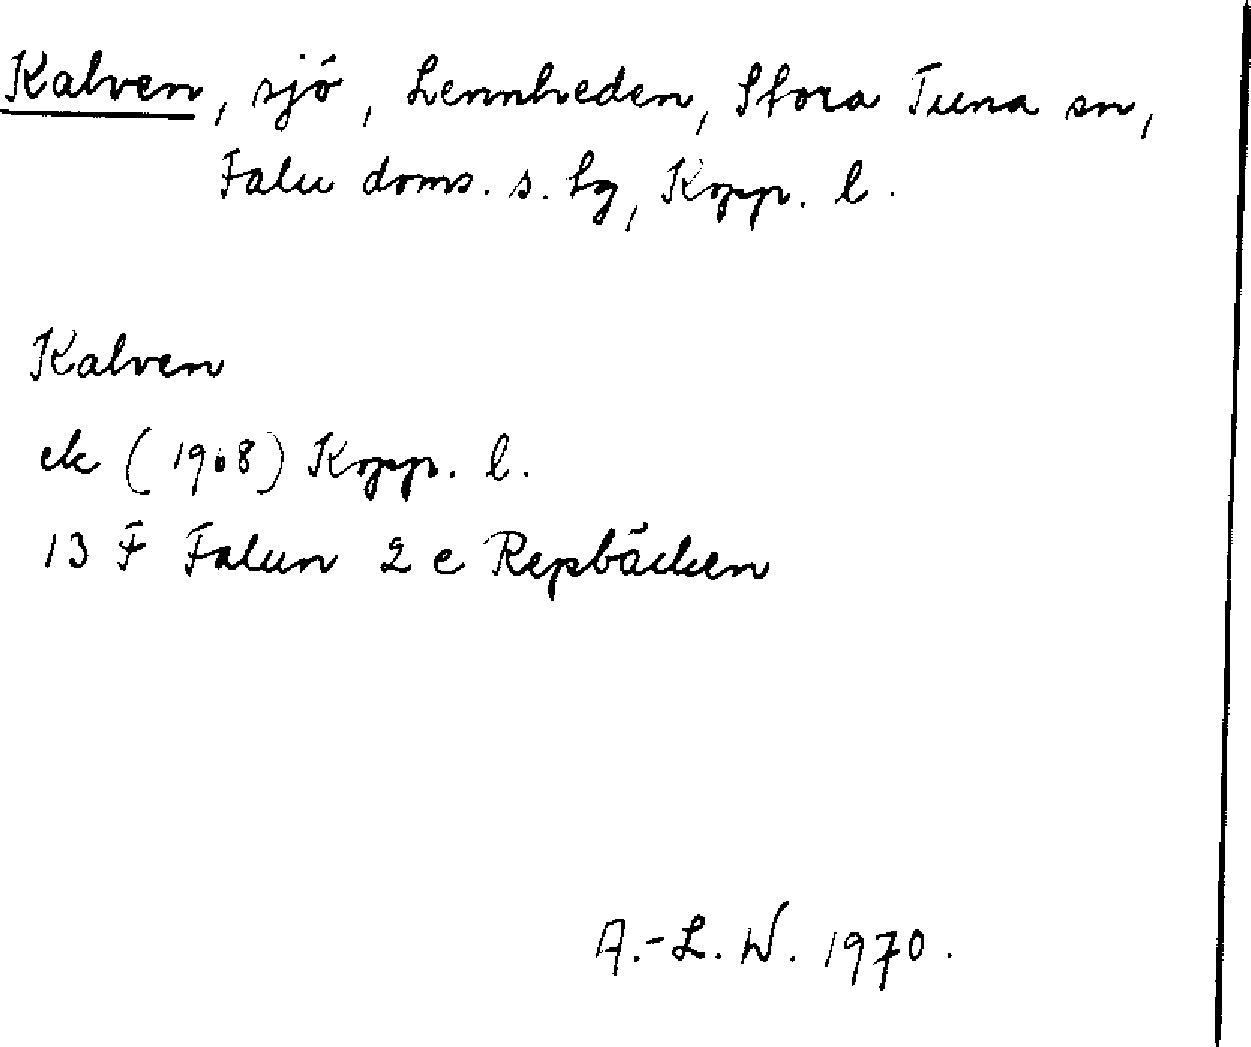 Kalven, sjö, Lennheden, Stora Tuna sn,
Falu doms. s. tg, Kopp. l.
Kalven
ek (1968) Kopp. l.
13 F Falun 2 c Repbäcken
A.-L. W. 1970.